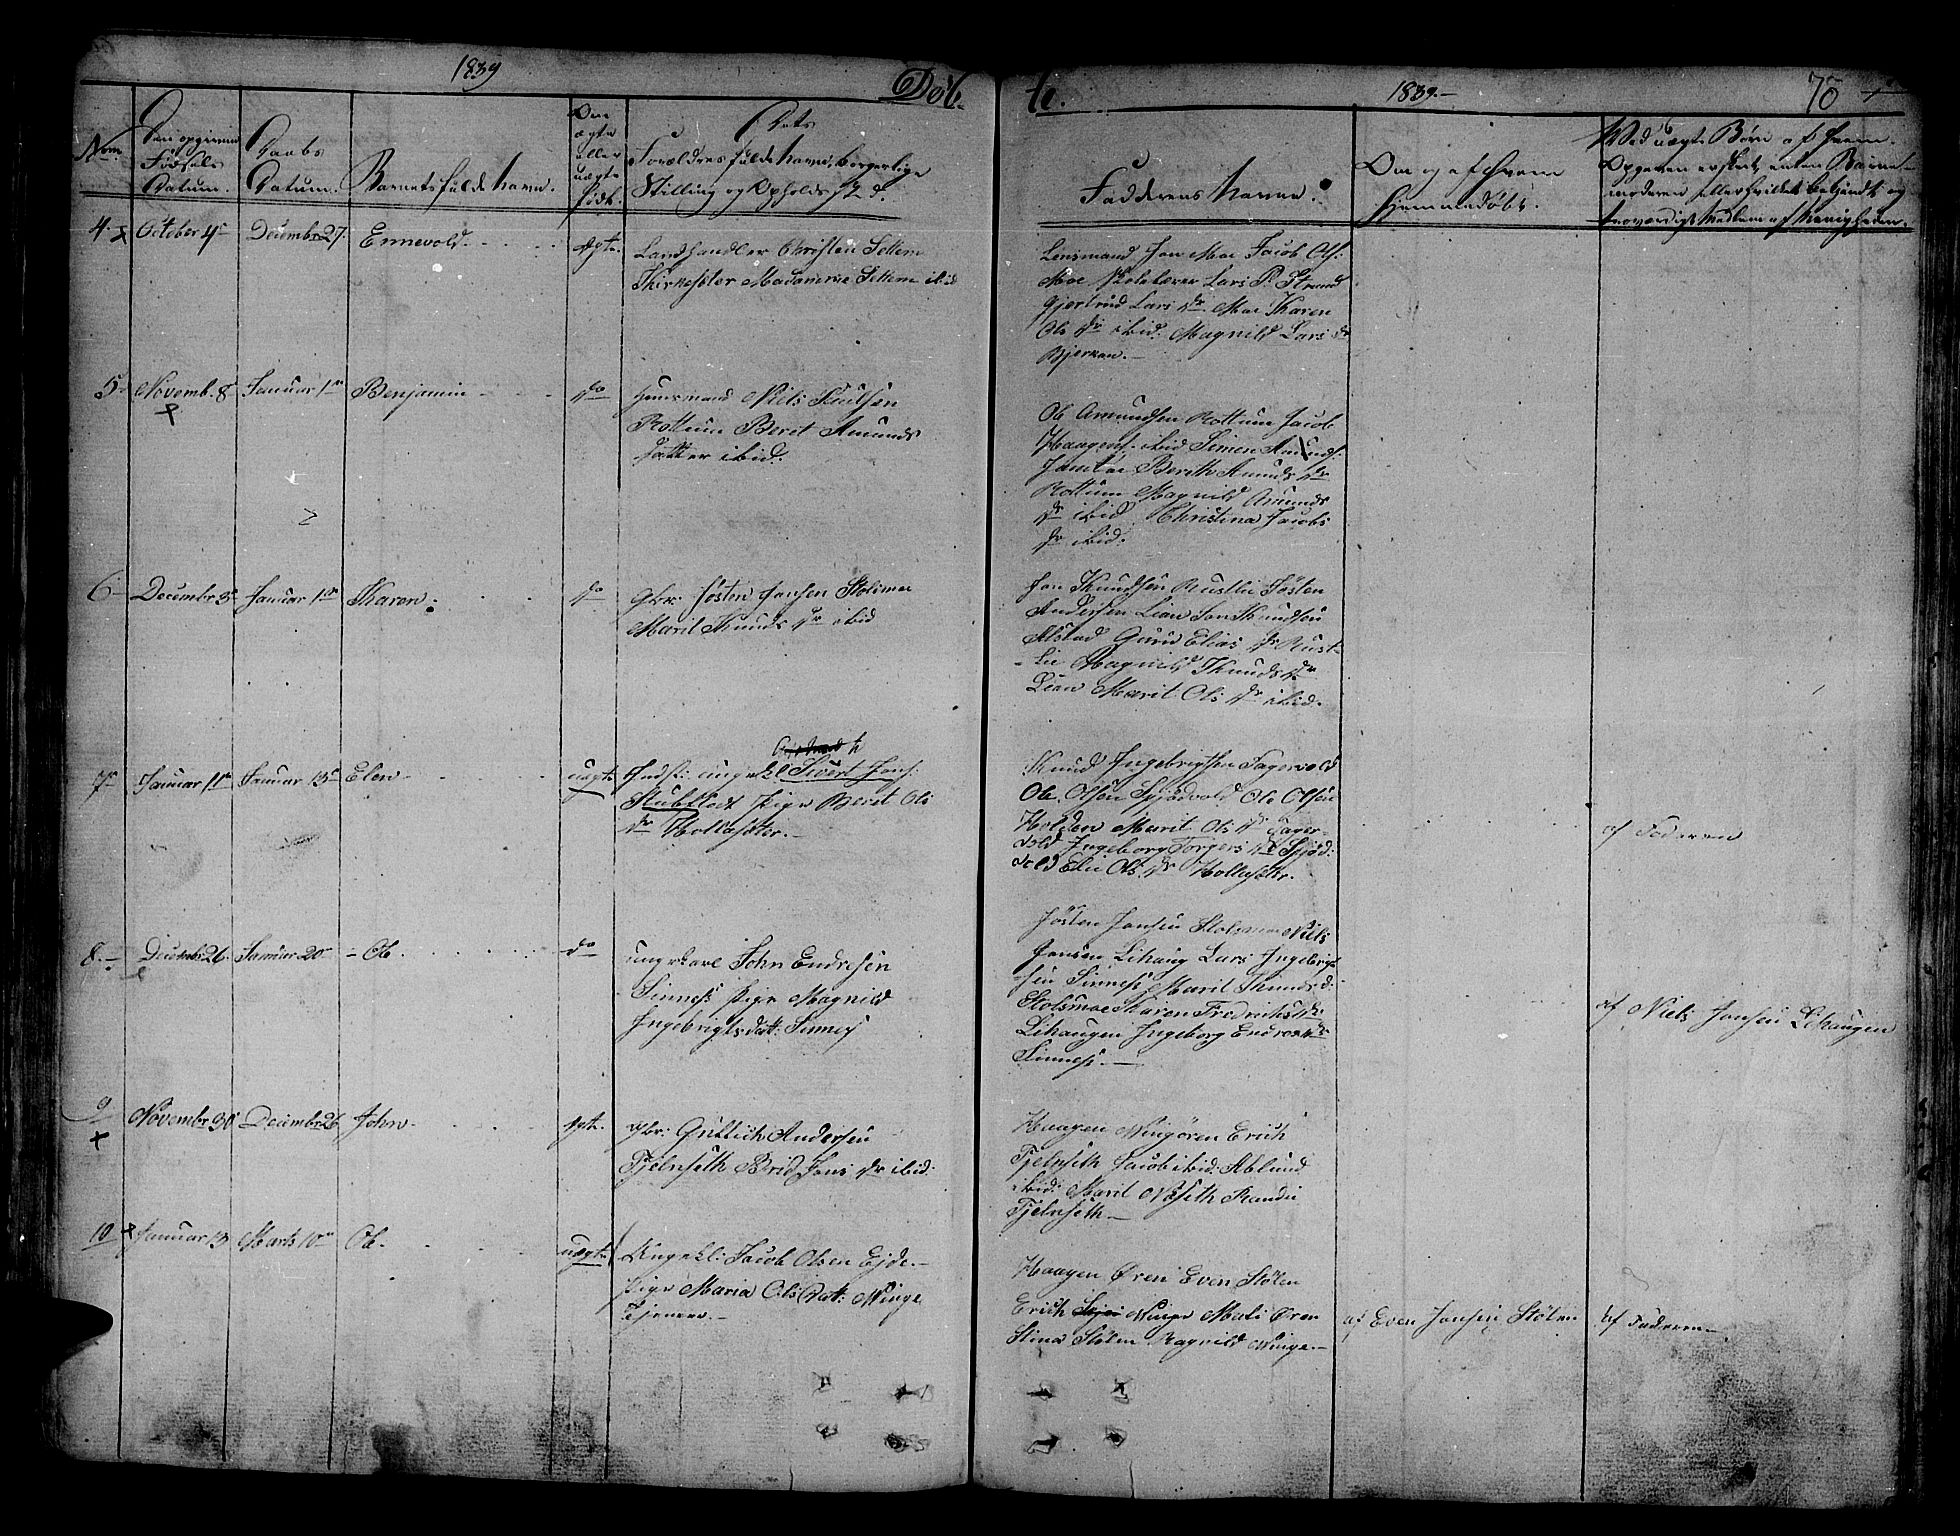 1839
Døb-
te.
1839.-
70
Num
Den opgivne
Fødsels
Datum.
Daabs
Datum.
Barnets fulde Navn.
Om
ægte
eller
uægte
født.
Dets
Forældres fulde Navn, borgerlige
Stilling og Opholdssted.
Faddernes Navne.
Om og af hvem
hjemmedøbt.
Ved uægte Børn af hvem
Opgaven er skeet, enten Barne-
moderen eller hvilket bekjendt og
troværdigt Medlem af Menigheden.
4. October 4de Decembr 27. Ennevold. ægte.
Landhandler Christen Settem
Kirkesæter Madamme Settem ibid
Lensmand Jon Moe Jacob Ols:
Moe Skolelærer Lars P. Strand
Gjertrud Lars dr Moe Karen
Ols dr ibid: Magnild Lars dr
Bjerkan.-
5. Novemb. 8 Januar 1ste Benjamin do
Huusmand Niels Knutsen
Rottum Berit Amunds
datter ibid:
Ole Amundsen Rottum Jacob
Haagens: ibid Simen Amunds:
Berith Amunds dr
Rottum Magnild Amunds
dr ibid Christina Jacobs
dr ibid:
6 Decembr 3 Januar 1ste Karen. do
Gbr: Jösten Jonsen Stolsmoe
Marit Knuds dr ibid
Jon Knudsen Rustlie Jösten
Andersen Lian Jon Knudsen
Alstad Guru Elias dr Rust-
-Lie Magnild Knuds dr
Lian Marit Ols dr ibid.
7 Januar 11te Januar 13de Elen uægte
Indst: ungekl Sivert Jons:
Stubstadt Pige Beret Ols
dr Hollasæter.-
Knud Ingebrigtsen Fagervold
Ole Olsen Spjödvold Ole Olsen
Holden Marit Ols dr Fager-
vold Ingeborg Torgers dr Spjöd-
vold Elie Ols. dr Hollasæter.
af Faderen
8.- Decembr 26. Januar 20de Ole. do
ungkarl John Endresen
Sinnes Pige Magnild
Ingebrigtsdatt: Sinnes
Jösten Jonsen Stolsmoe Niels
Jonsen Lihaug Lars Ingebrigt-
sen Sinnes Marit Knuds d:
Stolsmoe Karen Fredriks dr:
Lihaugen Ingeborg Endres dr
Sinnes.-
af Niels Jonsen Lihaugen
9 Novembr 30 Decembr 26 John. ægte.
Gbr: Gullich Andersen
Fjelnseth Brid Jons dr ibid:
Haagen Wingören Erich
Fjelnseth Jacob ibid: Ablund
ibid: Marit Nöseth Randi
Fjelnseth.-
10 Januar 13 Marts 10de Ole. uægte
Ungekl: Jacob Olsen Eide.-
Pige Maria Ols Datt: Winge
Tjenere.-
Haagen Ören Even Stölen
Erich Winge Mali Ören
Stina Stölen Ragnild Winge.-
af Even Jonsen Stölen
af Faderen.